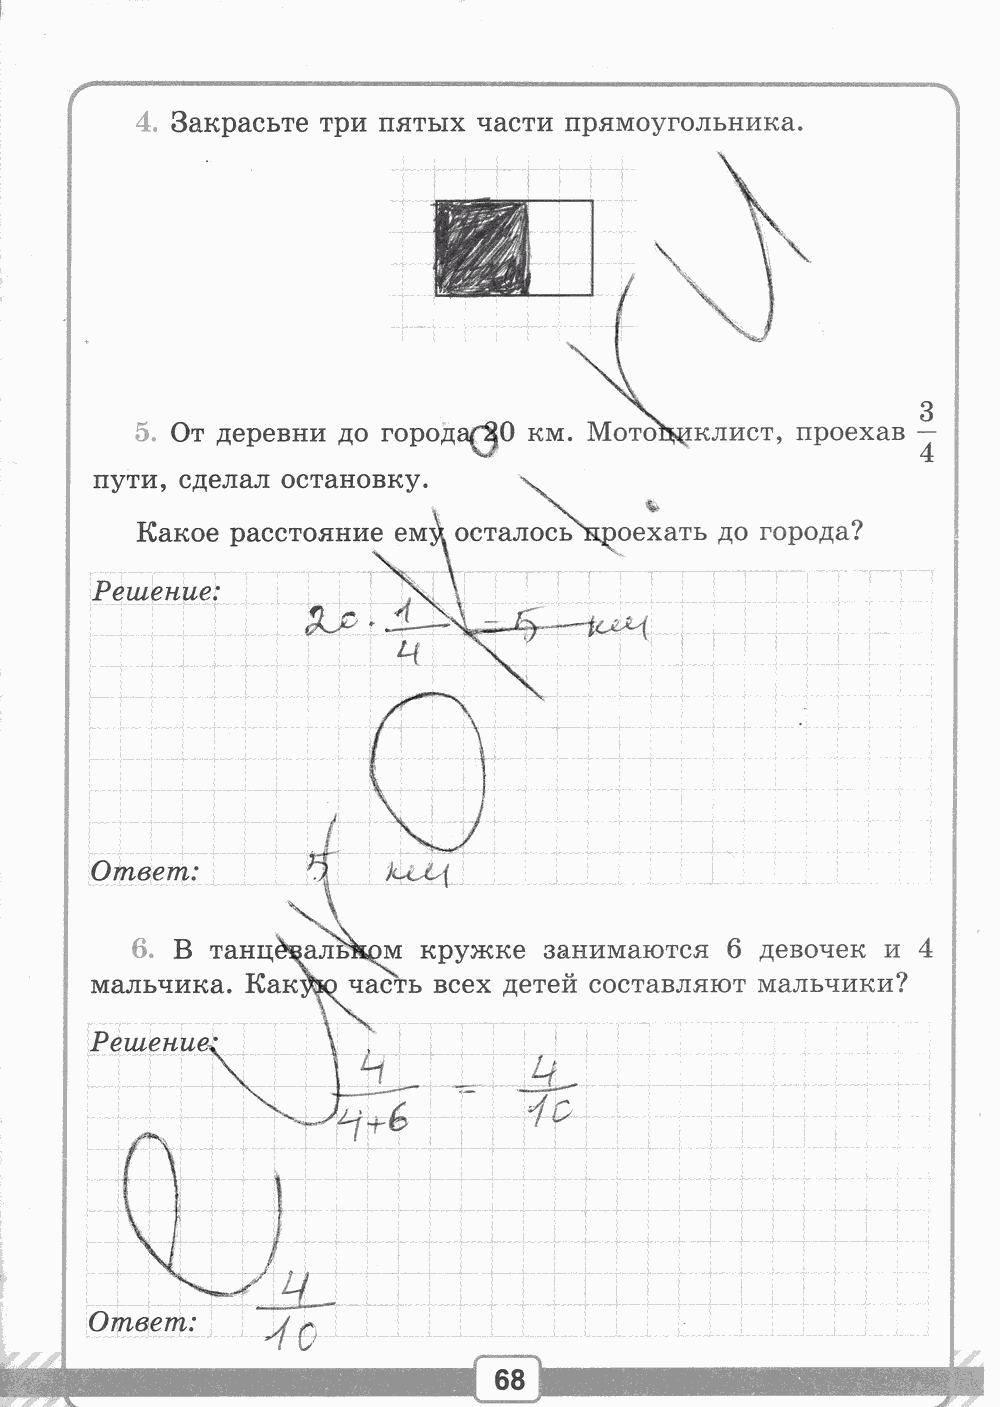 4. Закрасьте три пятых части прямоугольника.
5. От деревни до города 20 км. Мотоциклист, проехав 3/4
пути, сделал остановку.
Какое расстояние ему осталось проехать до города?
Решение:
20 · 1/4 = 5 км
Ответ: 5 км
6. В танцевальном кружке занимаются 6 девочек и 4
мальчика. Какую часть всех детей составляют мальчики?
Решение:
4/4+6 = 4/10
Ответ: 4/10
68